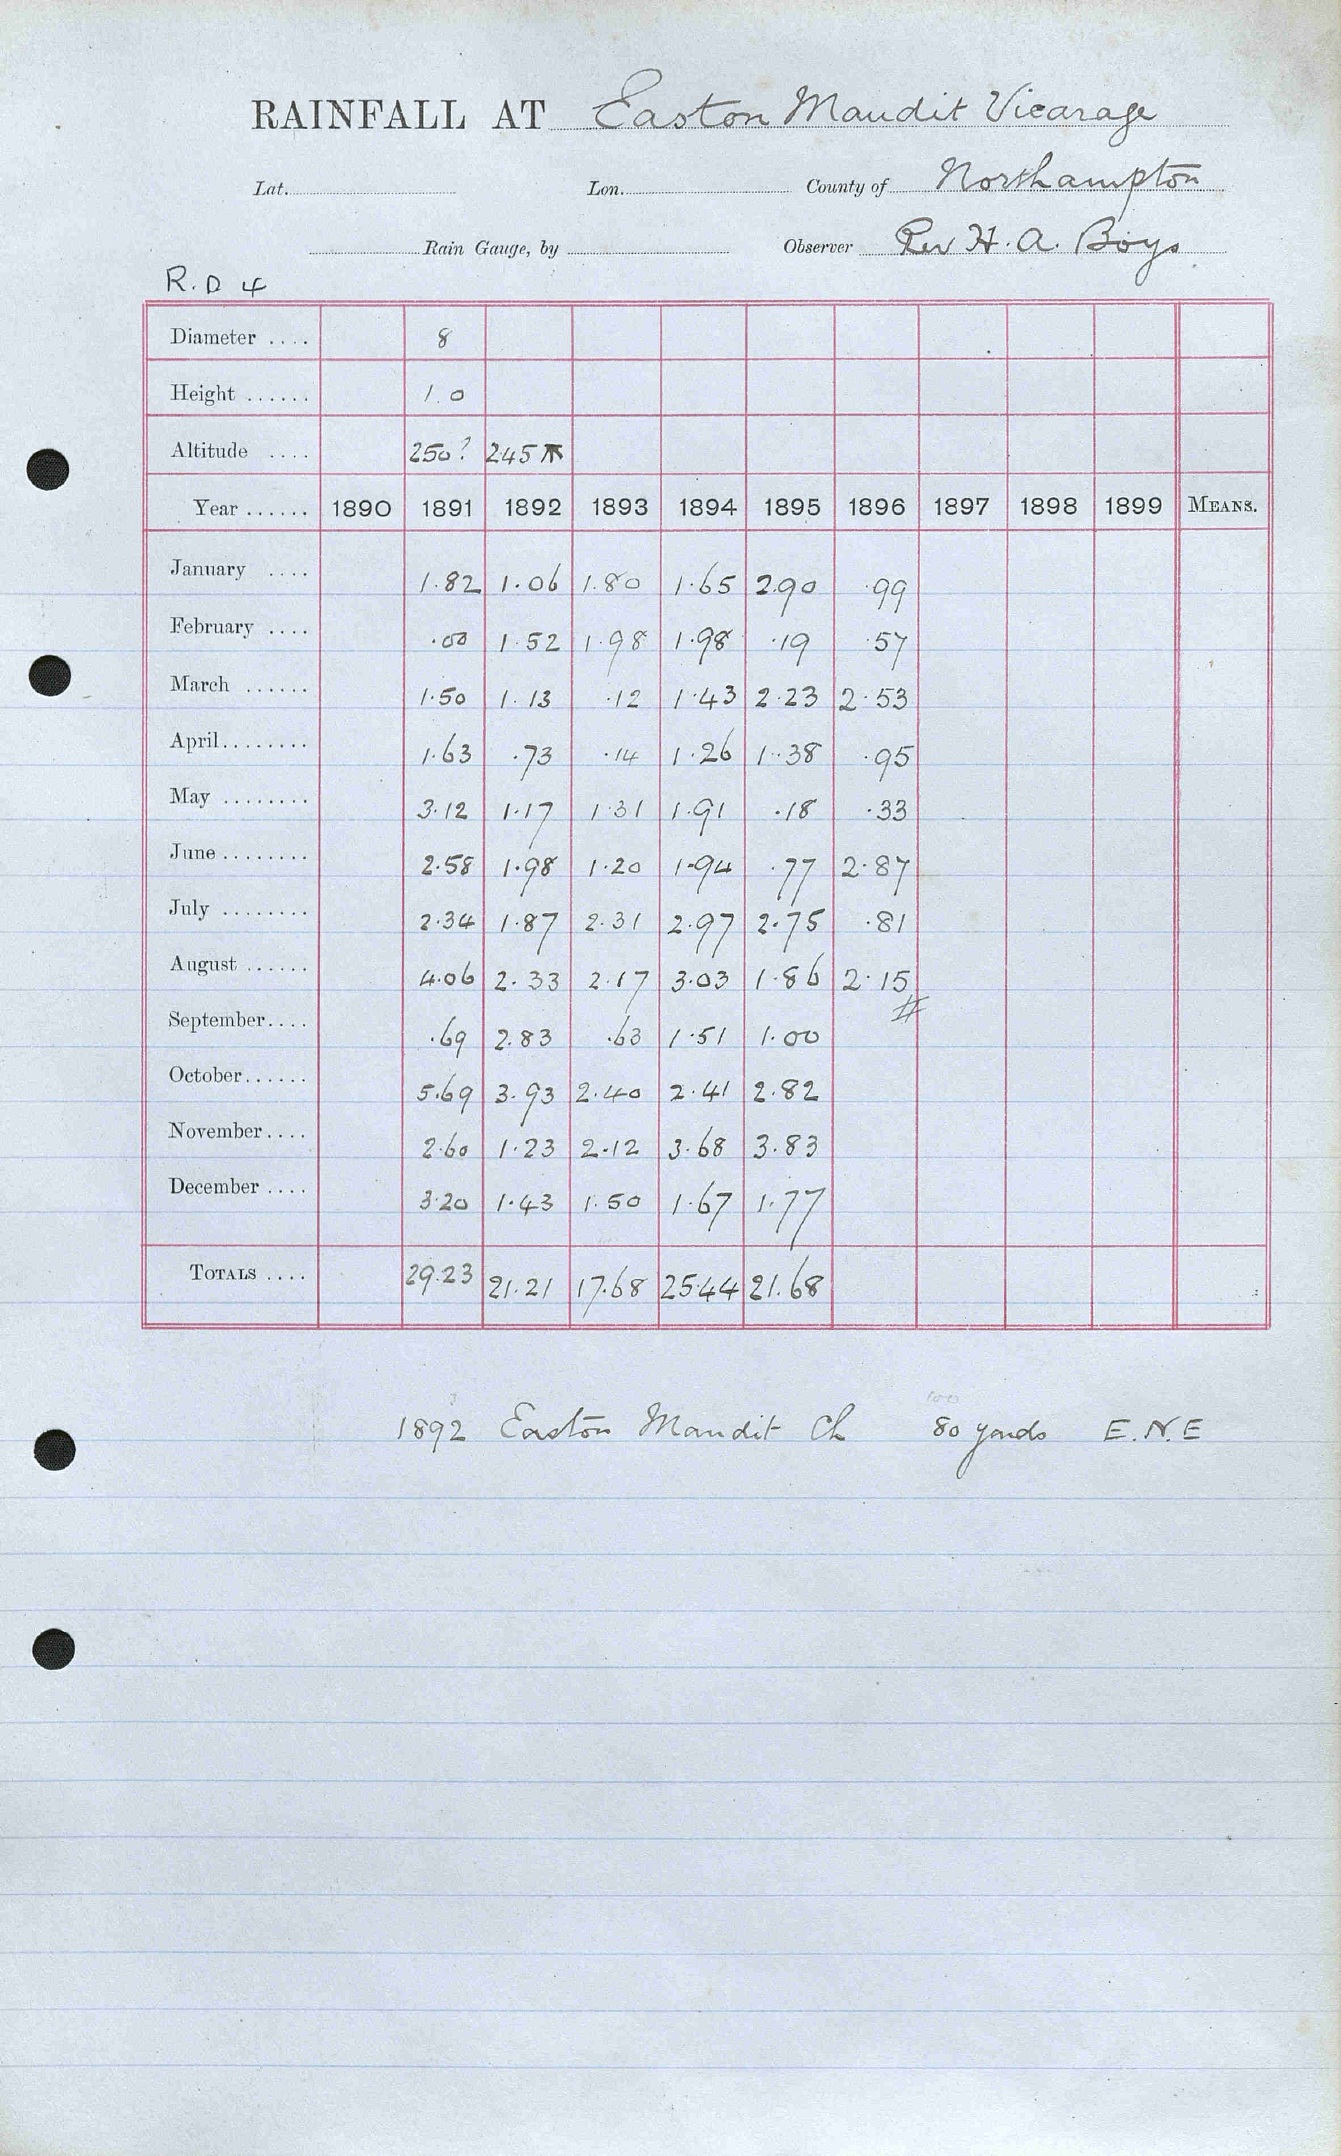 RAINFALL AT Easton Maudit Vicarage
Lat. Lon. County of Northampton
Rain Gauge, by Observer Rev H. A. Boys
R. D 4
Diameter .... 8
Height ...... 1.0
Altitude .... 250? 245
Year ...... 1890 1891 1892 1893 1894 1895 1896 1897 1898 1899 MEANS.
January .... 1.82 1.06 1.80 1.65 2.90 .99
February .... .00 1.52 1.98 1.98 .19 .57
March ...... 1.50 1.13 .12 1.43 2.23 2.53
April........ 1.63 .73 .14 1.26 1.38 .95
May ........ 3.12 1.17 1.31 1.91 .18 .33
June ........ 2.58 1.98 1.20 1.94 .77 2.87
July ........ 2.34 1.87 2.31 2.97 2.75 .81
August ...... 4.06 2.33 2.17 3.03 1.86 2.15
September.... .69 2.83 .63 1.51 1.00 #
October...... 5.69 3.93 2.40 2.41 2.82
November.... 2.60 1.23 2.12 3.68 3.83
December .... 3.20 1.43 1.50 1.67 1.77
TOTALS .... 29.23 21.21 17.68 25.44 21.68
100
1892 Easton Maudit Ch 80 yards E.N.E